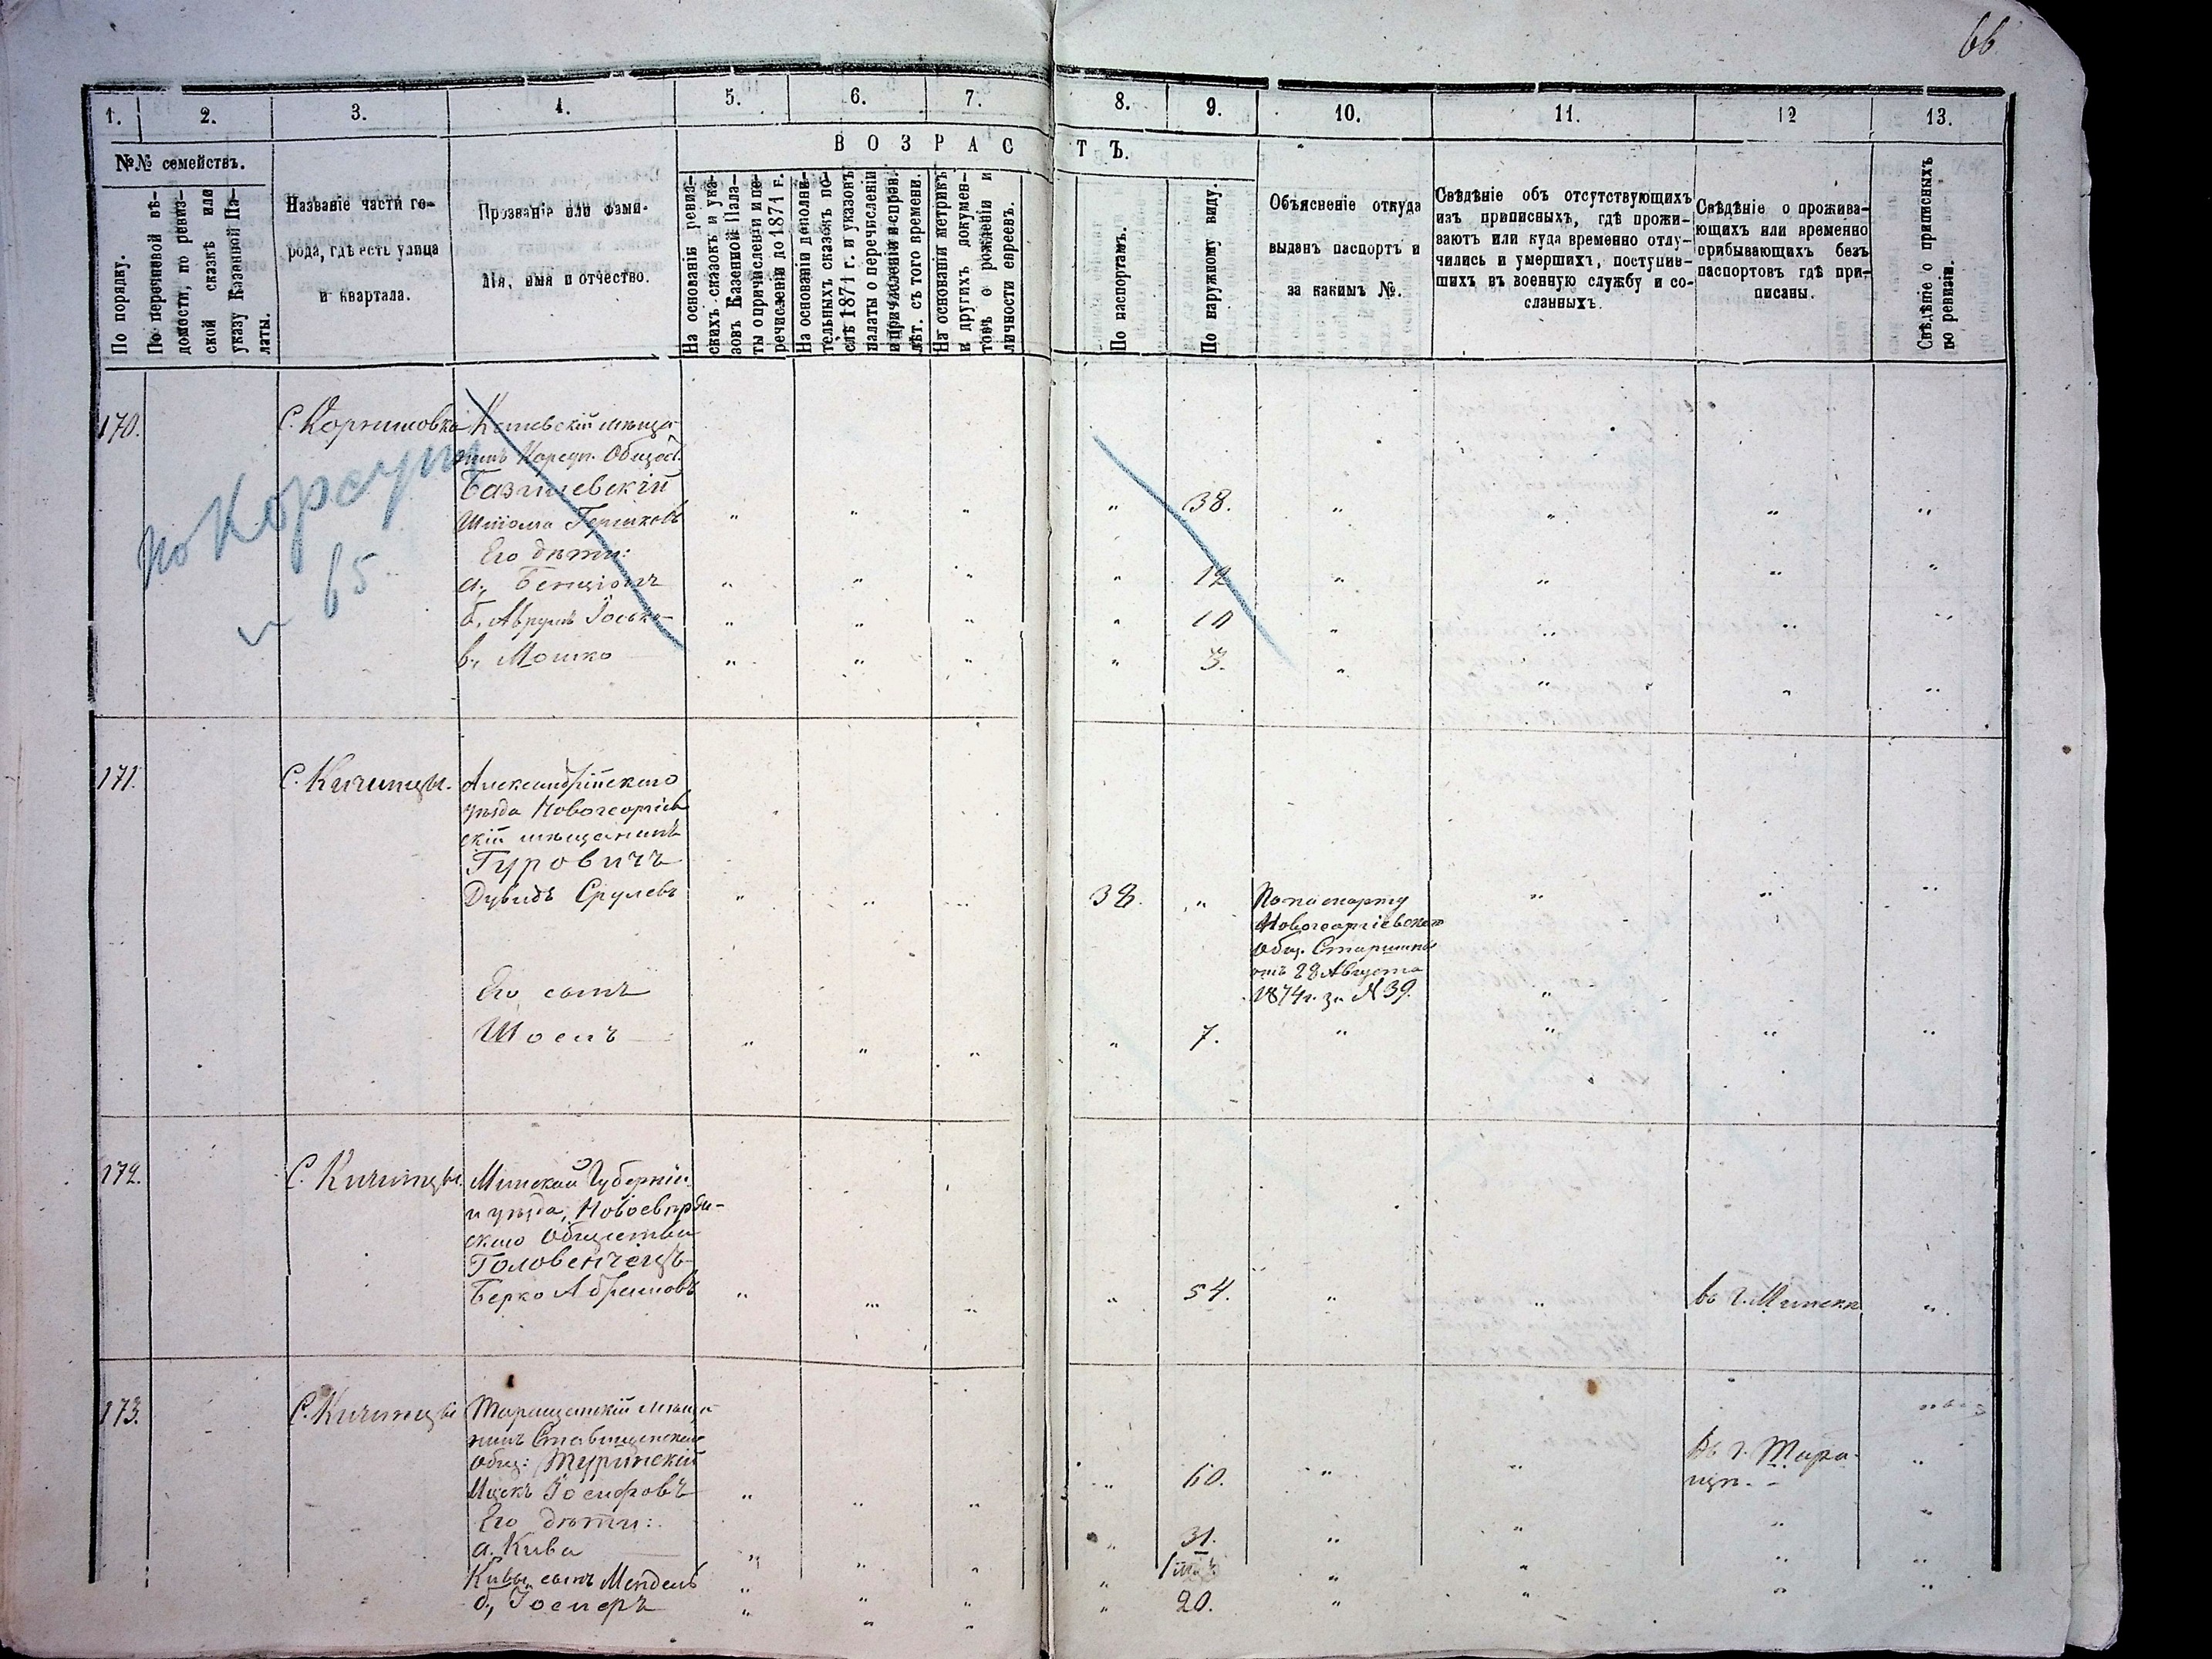 66
1. 2. 3. 4. 5. 6. 7. 8. 9. 10. 11. 12 13.
№№ семействъ.
По порядку.
По перечневой вѣ-
домости, по ревиз-
ской сказкѣ или
указу Казенной Па-
латы.
Названіе части го-
рода, гдѣ есть улица
и квартала.
Прозваніе или фами-
лія, имя и отчество.
ВОЗРАСТЪ.
На основаніи ревиз-
скихъ сказокъ и ука-
зовъ Казенной Пала-
ты о причисленіи и пе-
речисленіи до 1871 г.
На основаніи дополни-
тельныхъ сказокъ по-
слѣ 1871 г. и указовъ
палаты о перечисленіи
и причисленіи и справ.
лѣт. съ того времени.
На основаніи метрикъ
и другихъ докумен-
товъ о рожденіи и
личности евреевъ.
По паспортамъ.
По наружному виду.
Объясненіе откуда
выданъ паспортъ и
за какимъ №.
Свѣдѣніе объ отсутствующихъ
изъ приписныхъ, гдѣ прожи-
ваютъ или куда временно отлу-
чились и умершихъ, поступив-
шихъ въ военную службу и со-
сланныхъ.
Свѣдѣніе о прожива-
ющихъ или временно
прибывающихъ безъ
паспортовъ гдѣ при-
писаны.
Свѣдѣніе о приписныхъ
по ревизіи.
170. С. Корниловка Каневскій мѣща-
нинъ Корсун. Общест.
Базилевскій
Шліома Гершковъ " " " " 38. " " " "
Его дѣти:
а, Бенціонъ " " " " 12 " " " "
б, Аврумъ Іосько " " " " 10 " " " "
в, Мошко " " " " 3. " " " "
по Корсуни
65
171. С. Кичинцы. Александрійскаго
уѣзда Новогеоргіев
скій мѣщанинъ
Гуровичъ
Дувидъ Срулевъ " " " 38. " По паспорту " " "
Новогеоргіевскаго
Общ. Старшины
отъ 28 Августа
1874 г. за № 39.
Его сынъ
Шоелъ " " " " 7. " " " "
172. С. Кичинцы. Минской Губерніи
и уѣзда, Новосвержен-
скаго Общества
Головенчецъ
Берко Абрамовъ " " " " 54. " " въ г. Минскѣ "
173. С. Кичинцы Таращанскій мѣща
нинъ Ставищенскаго
общ: Туринскій
Ицекъ Іосифовъ " " " " 60. " " Въ г. Тара-
щѣ. "
Его дѣти:
а. Кива " " " " 31. " " " "
Кивы сынъ Мендель " " " " " " " "
б, Іосперъ " " " " 20. " " " "